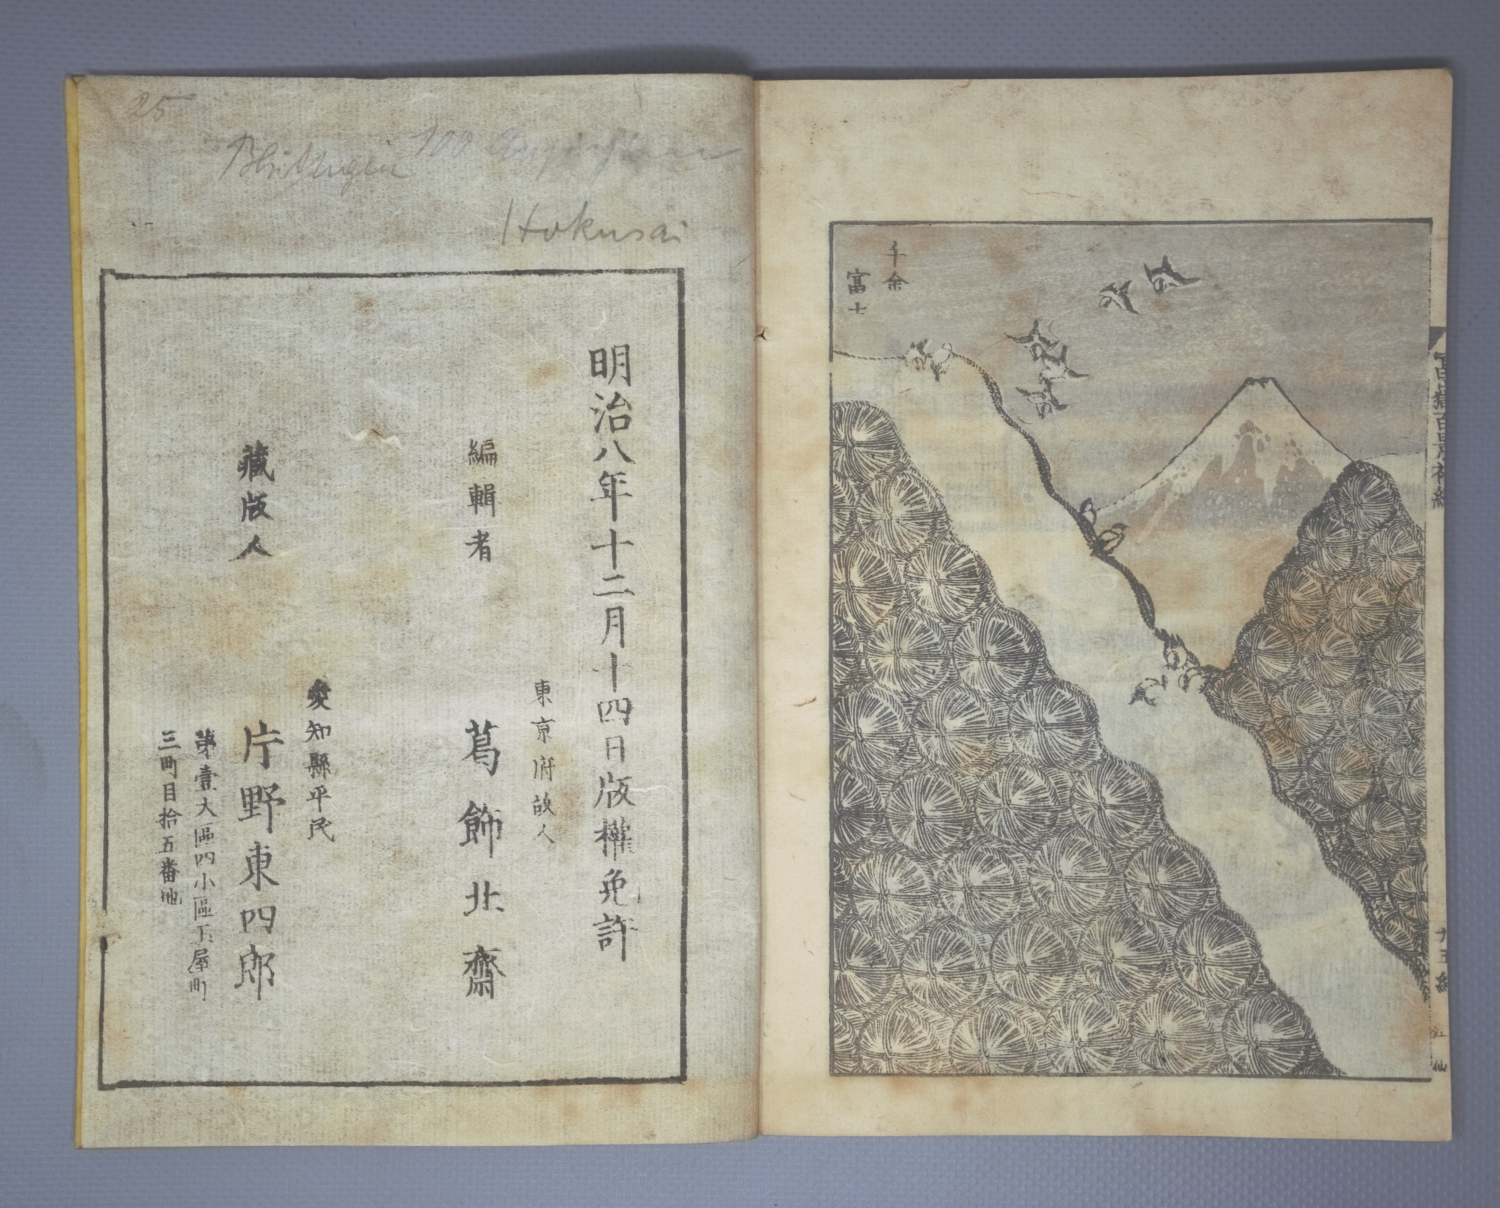 千金
富士
25
100
Hokusai
明治八年十二月十四日版權免許
東京府故人
編輯者 葛飾北齋
愛知縣平民
藏版人 片野東四郎
第壹大區四小區玉屋町
三町目拾五番地